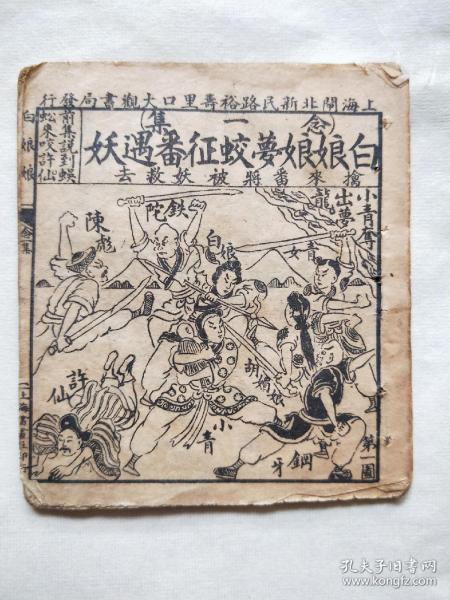 上海閘北新民路裕壽里口大觀書局發行
（念一集）
白娘娘夢蛟征番遇妖
擒來番將被妖救去
前集說到蜈
蚣來咬許仙
小青奪
出夢龍
鉄陀
陳彪
白娘
青女
胡媚娘
許仙
小青
鋼牛
第一圖
白娘娘
念集
孔夫子旧书网
www.kongfz.com